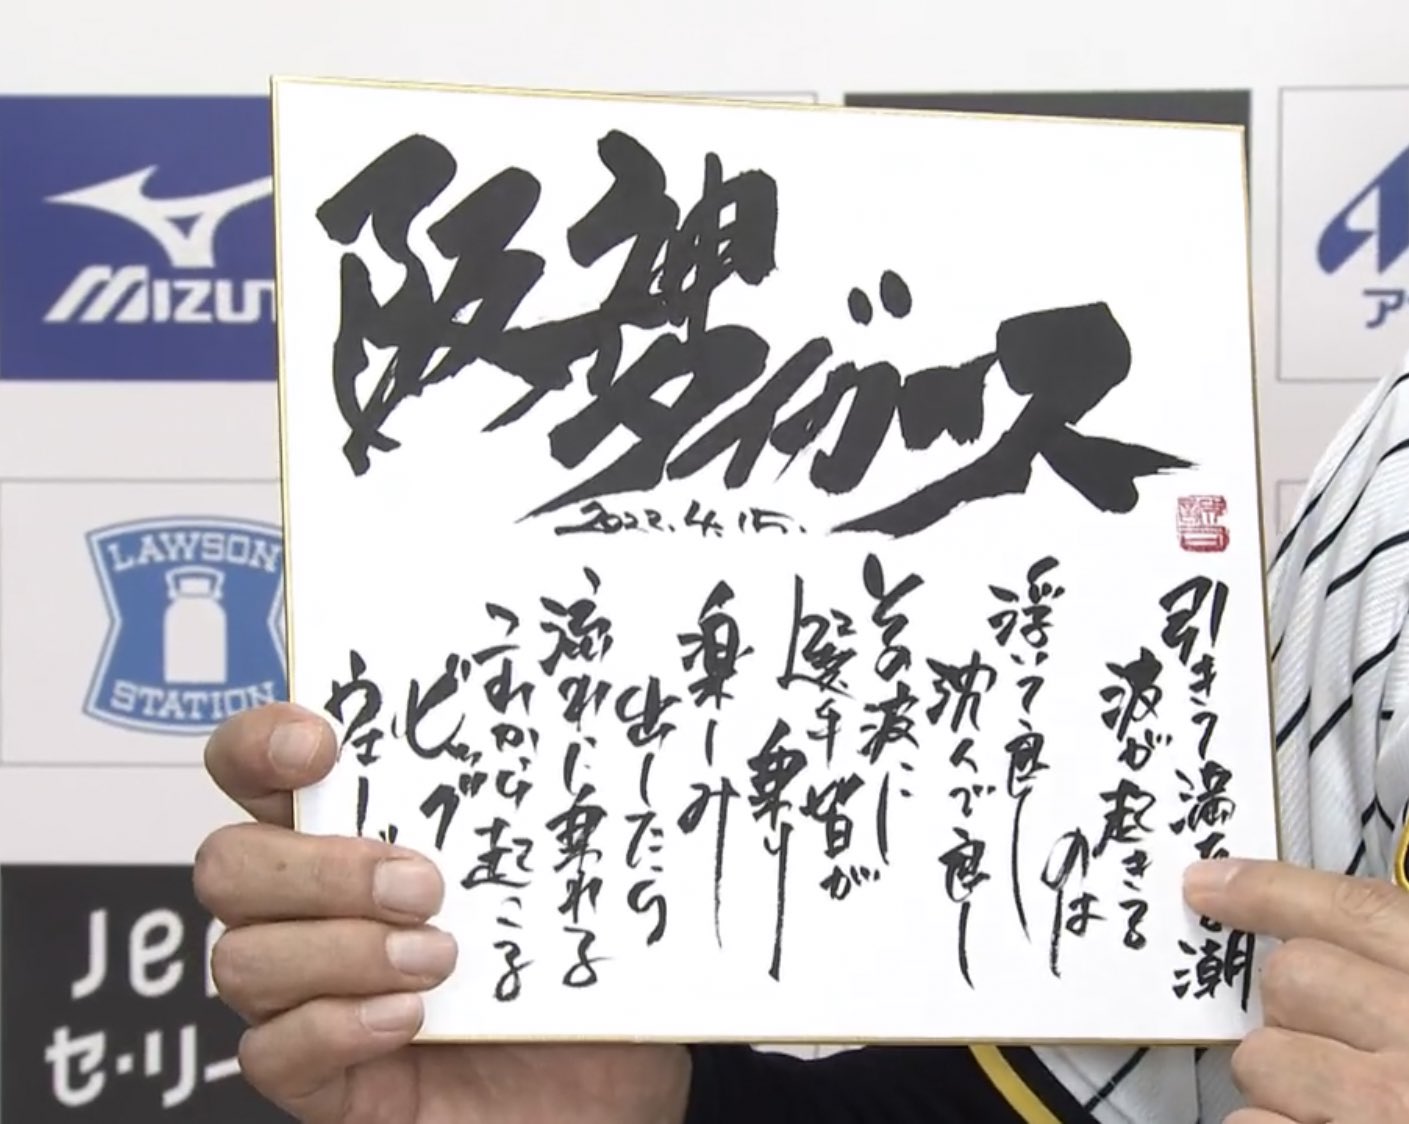 阪神
タイガース
2022.4.15.
引きて満たる潮
波が起きる
のは
浮いて良し
沈んで良し
その波に
選手皆が
乗り
楽しみ
出したら
流れに乗れる
これから起こる
ビッグ
ウェーブ
MIZU
LAWSON
STATION
セ・リー
ア